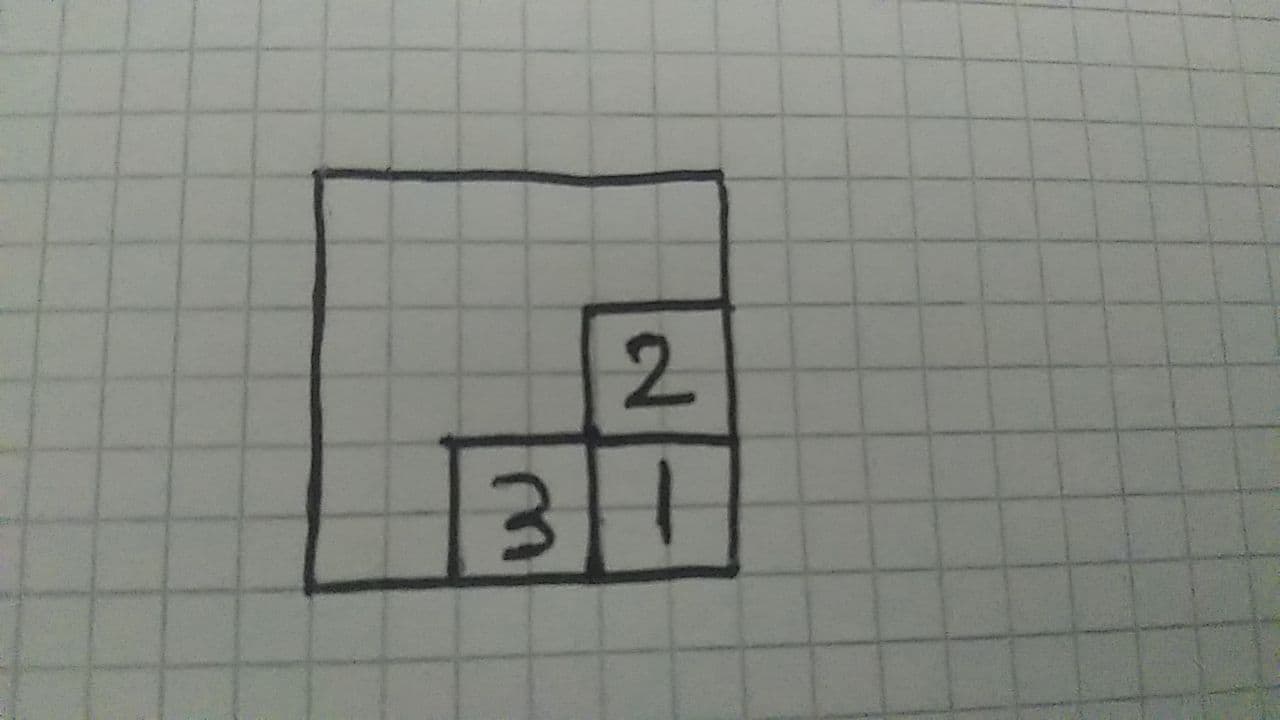 2
3 1